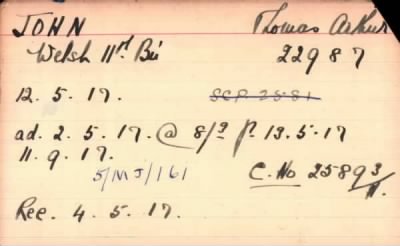 JOHN Thomas Arthur
Welsh 11th Bn 22987
12. 5. 17. SCP. 2581
ad. 2. 5. 17. @ 8/- 13. 5. 17
11. 9. 17.
5/MJ/161 C. No 25893/
Rec. 4. 5. 17.